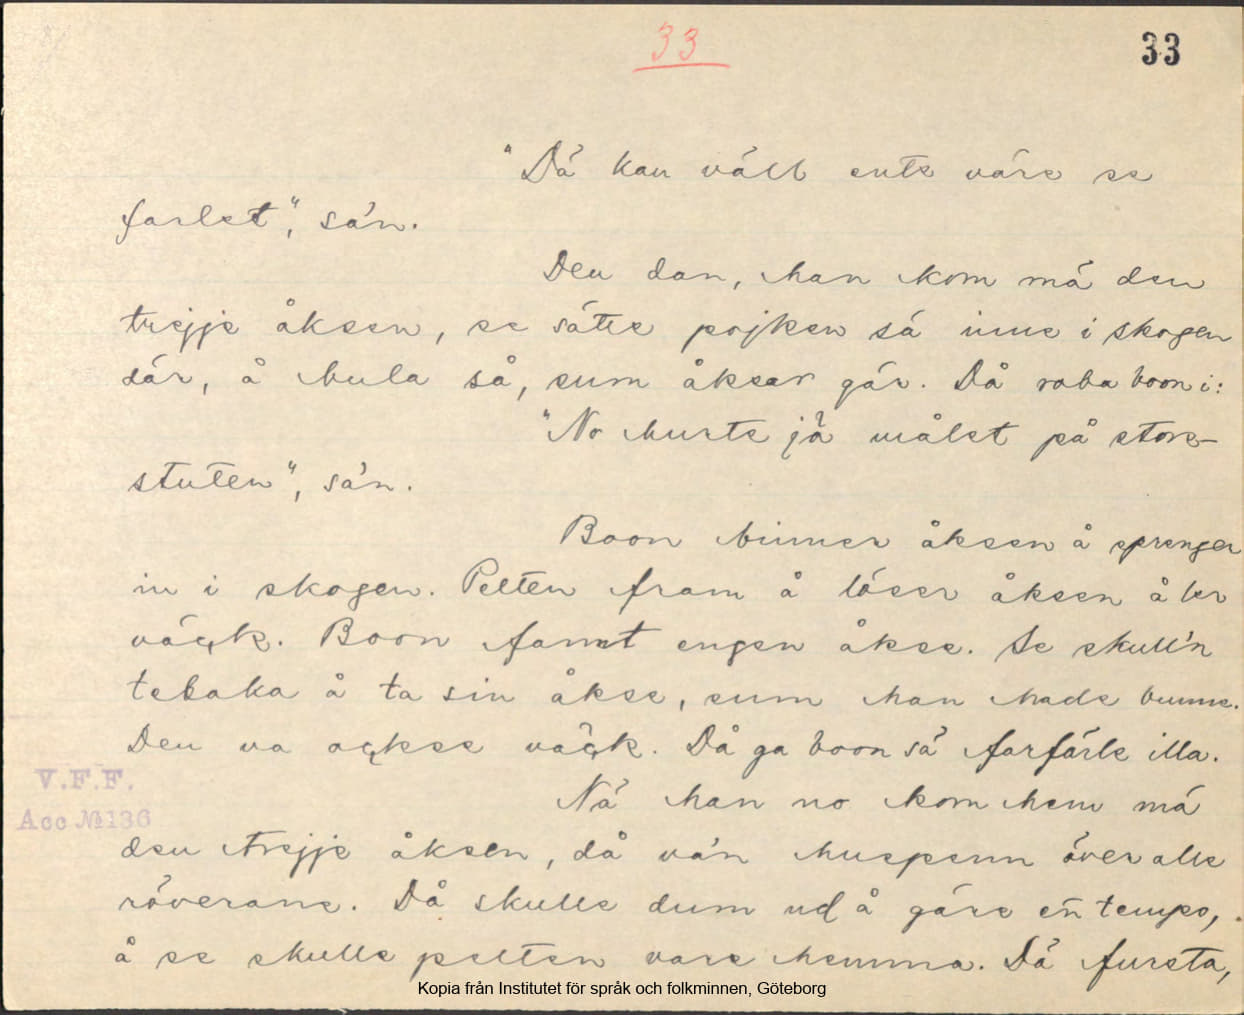 33
33
"Dä kan väll ente väre se
farlet", sa'n.
Den dan, han kom mä den
trejje åksen, se sätte pojken sä inne i skogen
där, å bula så, sum åksar gär. Då roba boon i:
"No hurte jä målet på store-
stuten", sa'n.
Boon binner åksen å sprenger
in i skogen. Pelten fram å löser åksen å ler
väck. Boon fannt engen åkse. Se skull'n
tebaka å ta sin åkse, sum han hade bunne.
Den va ackse väck. Då ga boon sä farfärle illa.
Nä han no kom hem mä
den trejje åksen, då va'n huspenn över alle
röverane. Då skulle dum ud å gäre en tempo,
å se skulle pelten vare hemma. Dä fursta,
V.F.F.
Acc № 136
Kopia från Institutet för språk och folkminnen, Göteborg